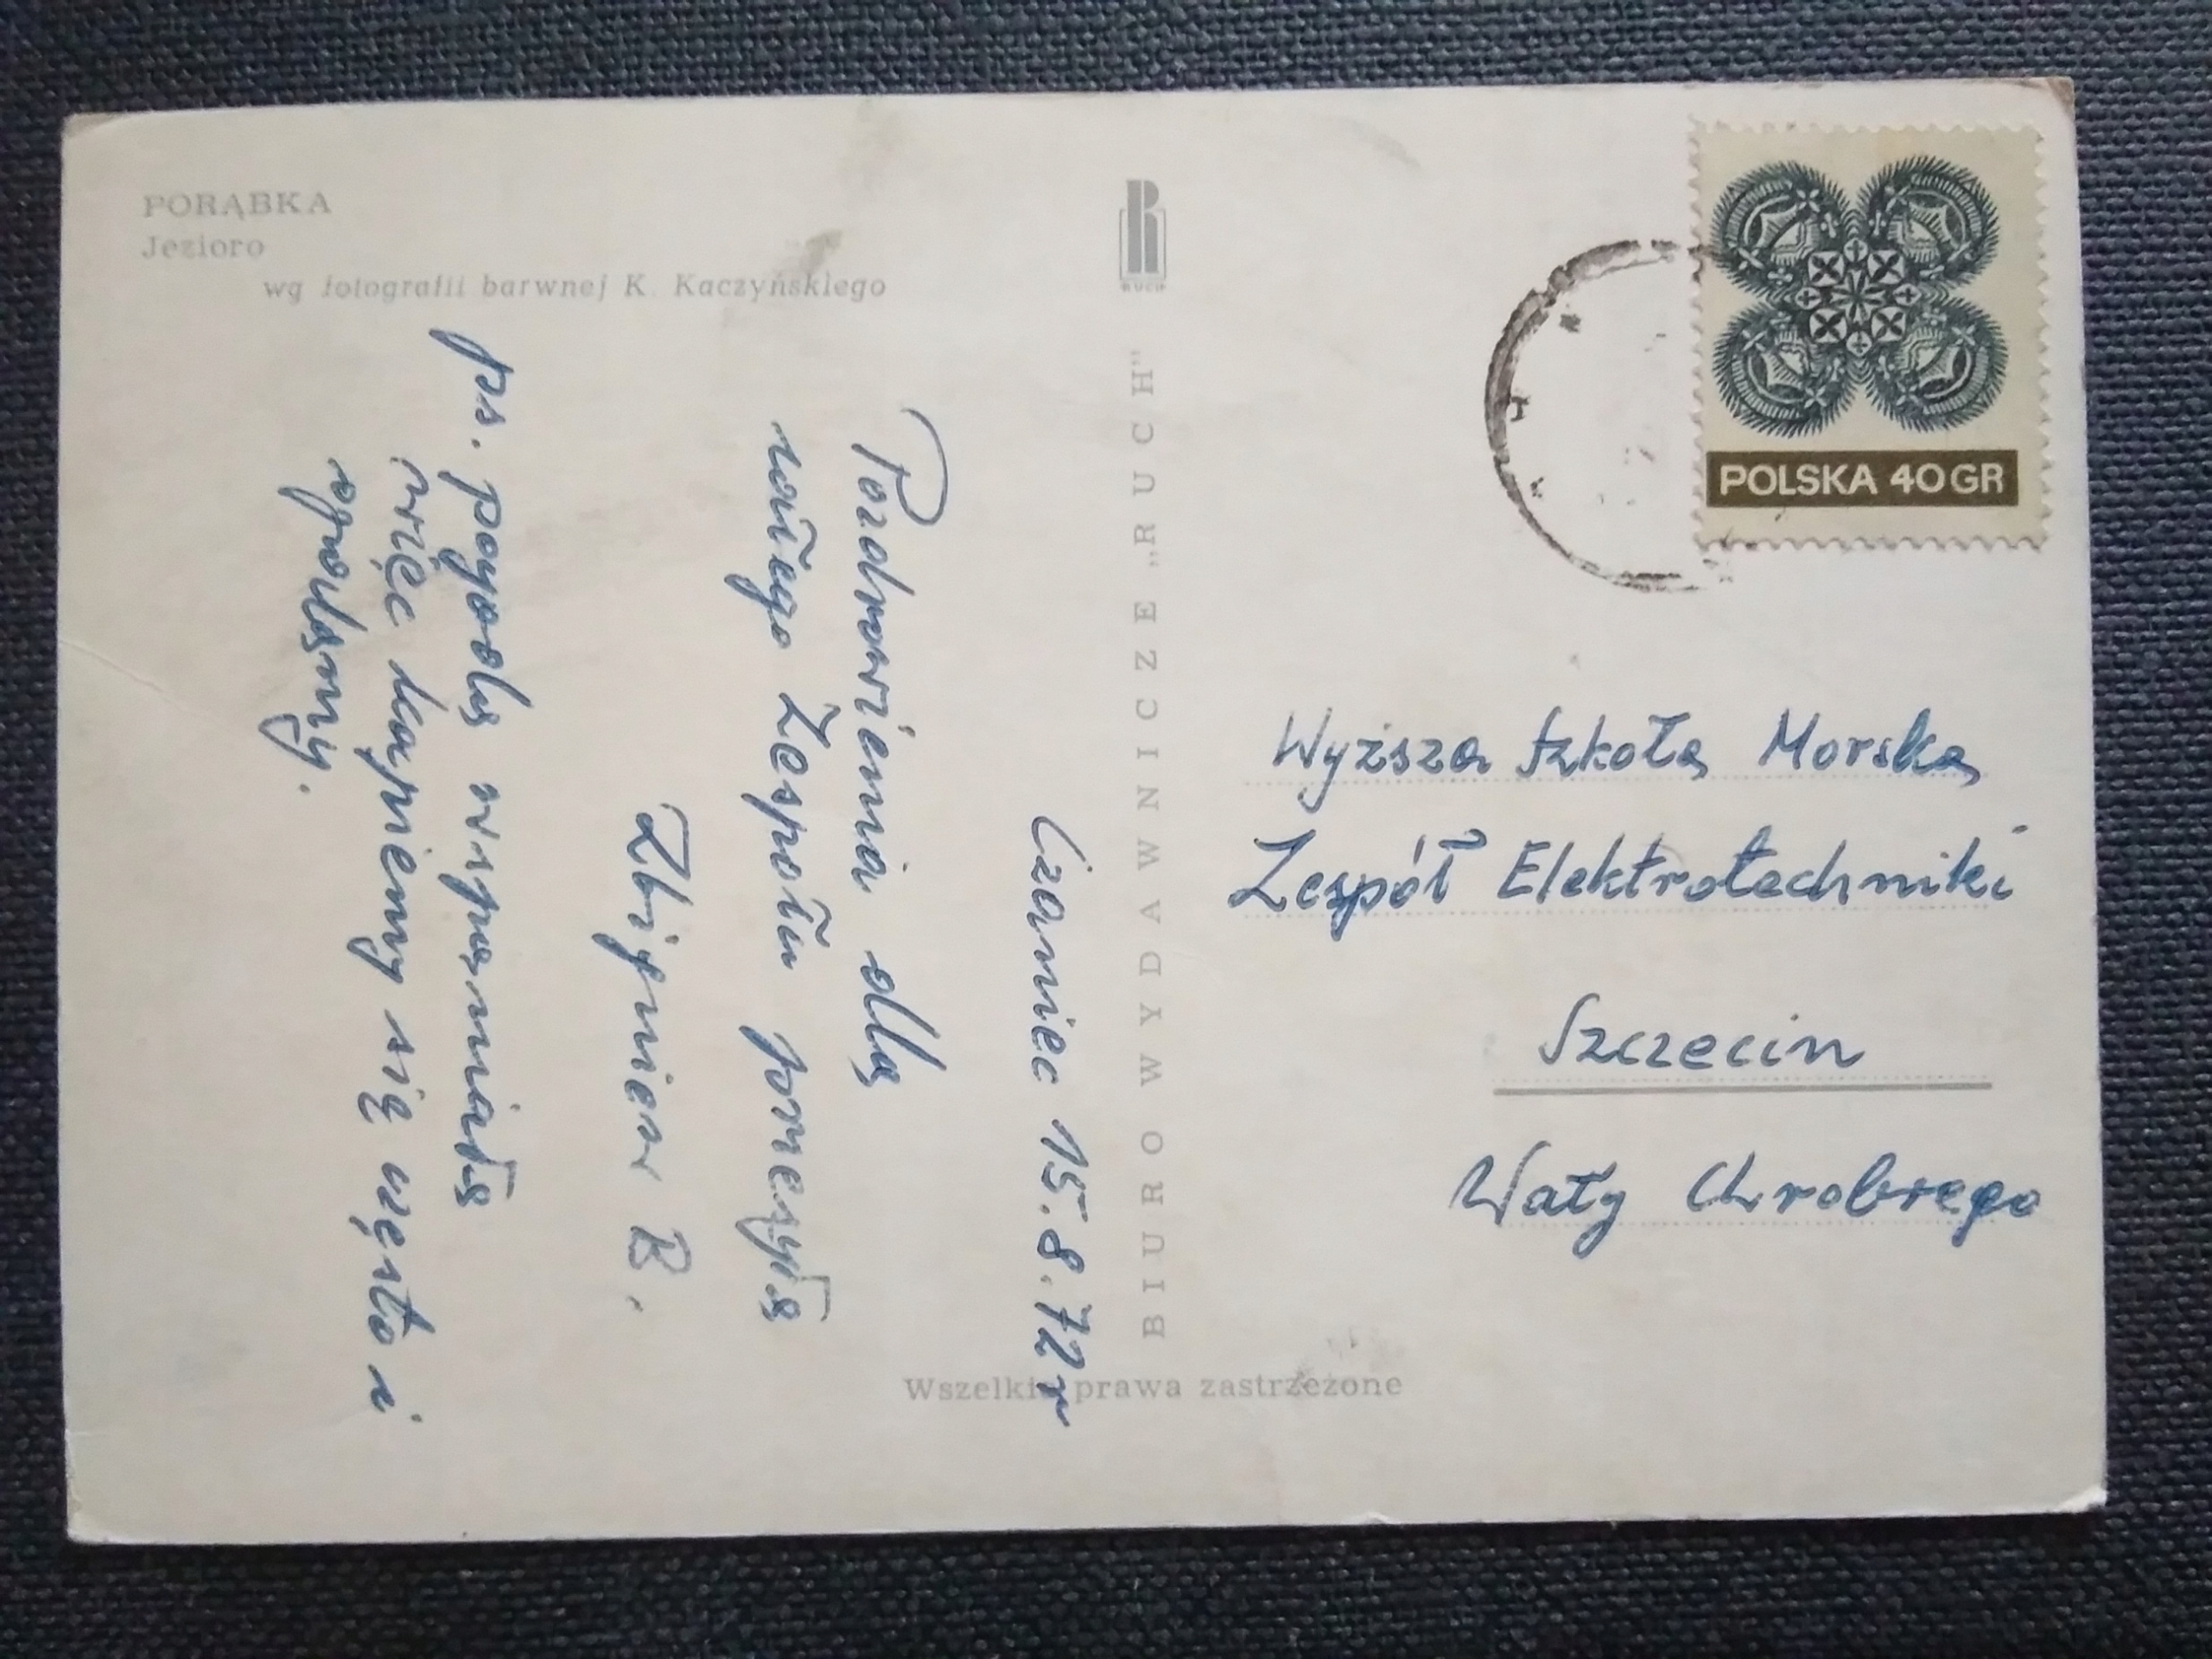 PORĄBKA
Jezioro
wg fotografii barwnej K. Kaczyńskiego
RUCH
BIURO WYDAWNICZE „RUCH"
Wszelkie prawa zastrzeżone
POLSKA 40 GR
Czaniec 15.8.72 r
Pozdrowienia dla
całego Zespołu przesyła
Zbigniew B.
ps. pogoda wspaniała
więc kąpiemy się często i
Wyższa Szkoła Morska
Zespół Elektrotechniki
Szczecin
Wały Chrobrego